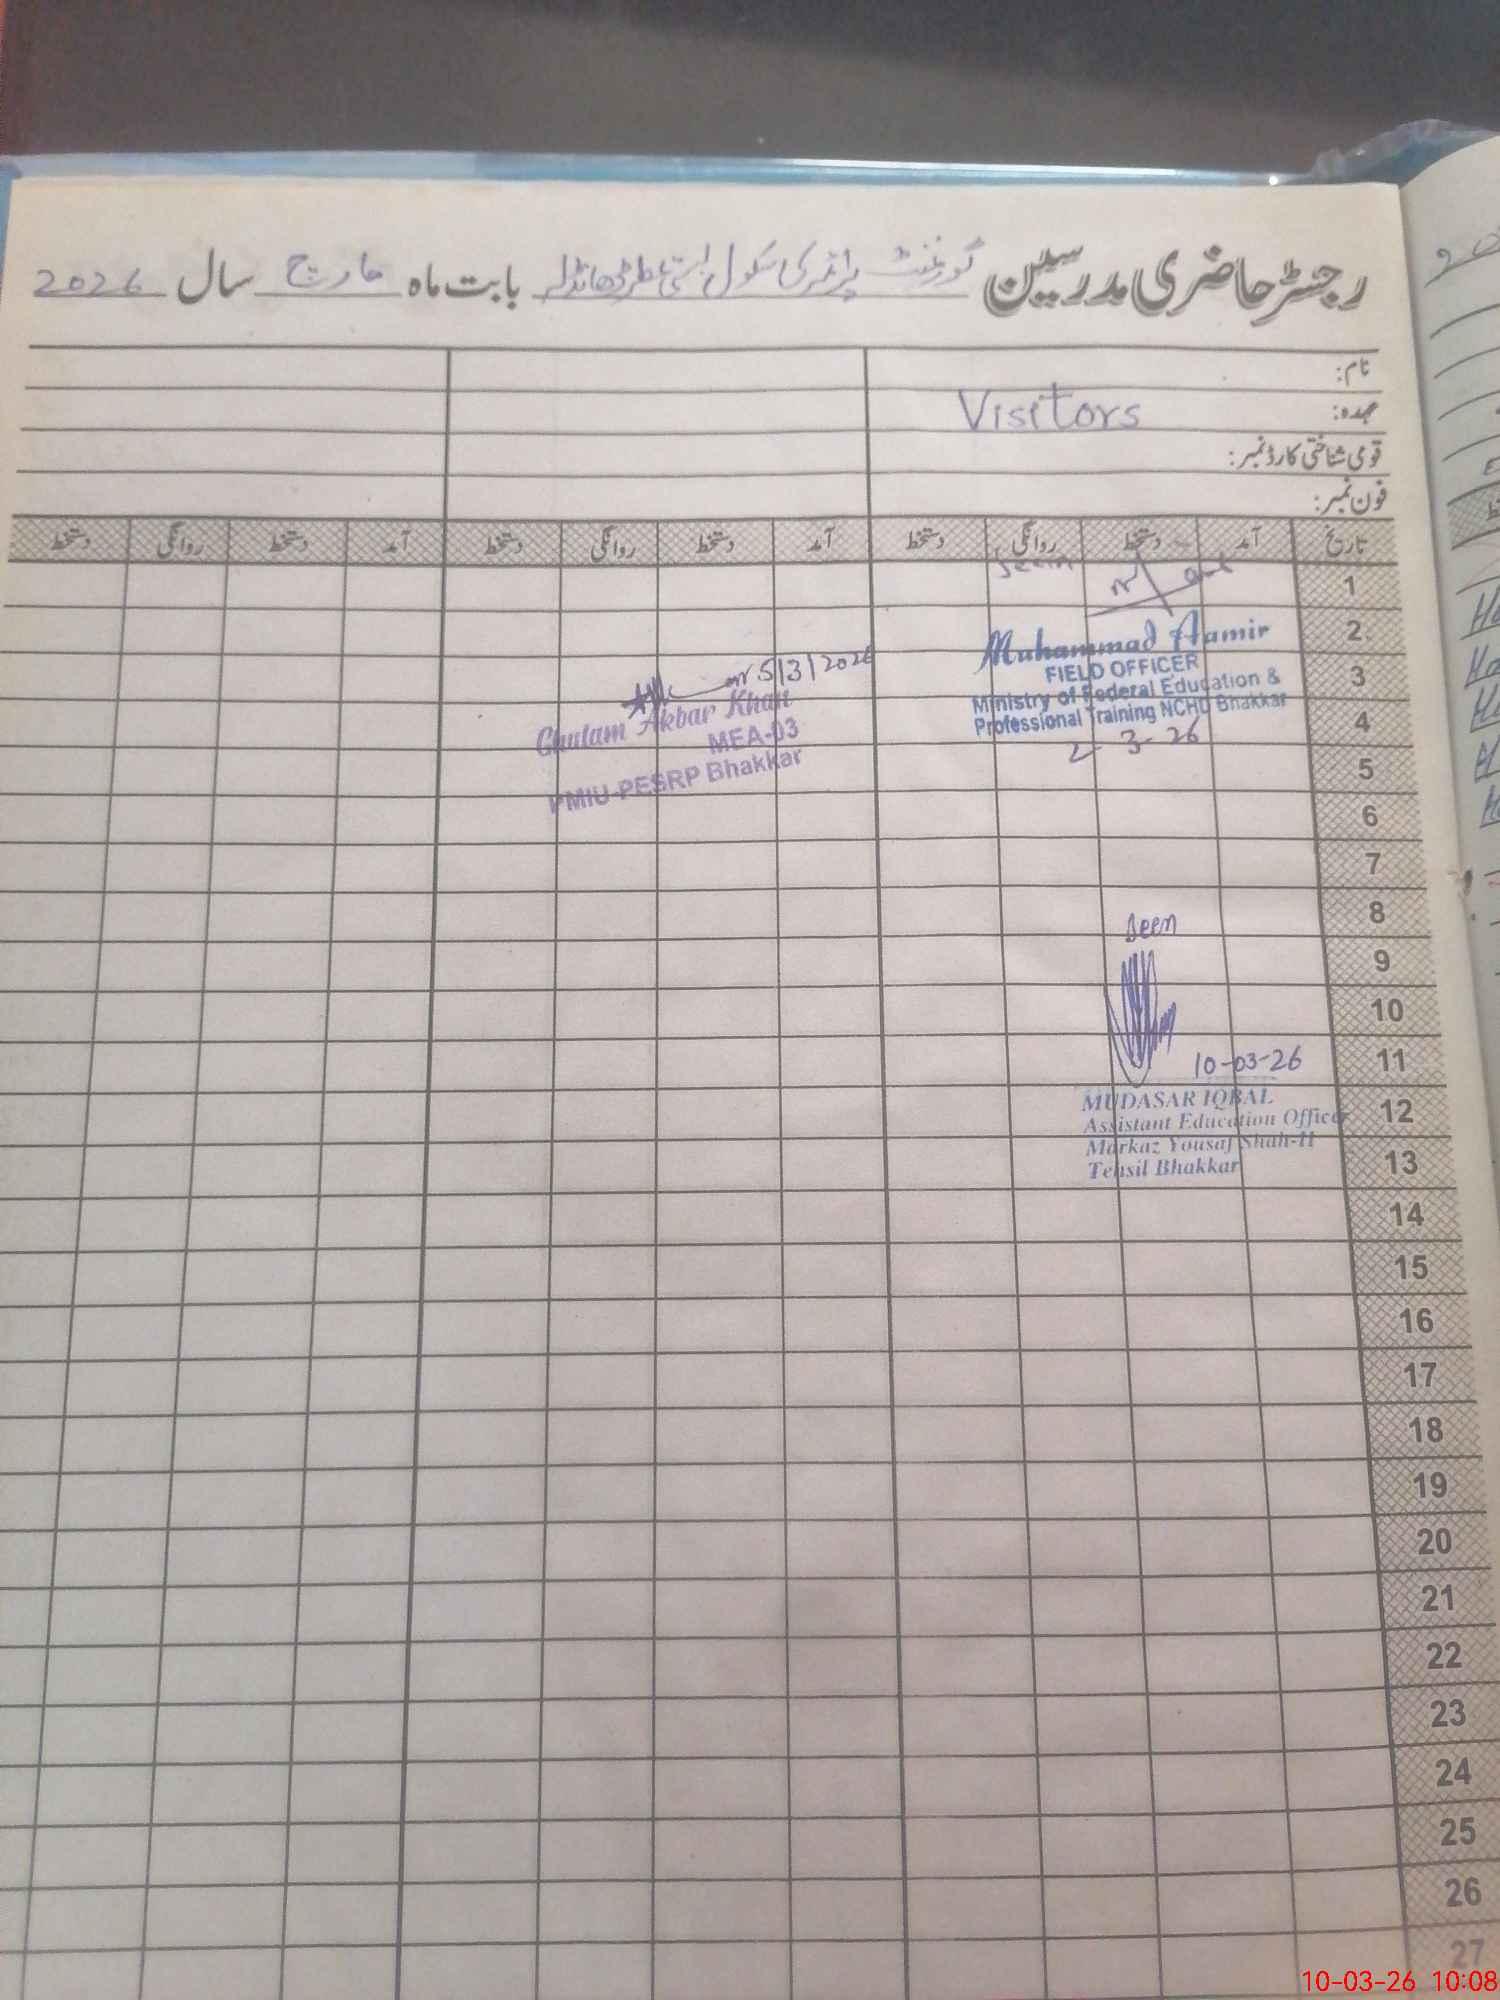 رجسٹر حاضری مدرسین گورنمنٹ پرائمری سکول بستی بابت ماہ مارچ سال 2026
نام:
عہدہ: Visitors
قومی شناختی کارڈ نمبر:
فون نمبر:
تاریخ آمد دستخط روانگی دستخط آمد دستخط روانگی دستخط آمد دستخط روانگی دستخط
1
Seen
2
Muhammad Aamir
FIELD OFFICER
Ministry of Federal Education &
Professional Training NCHD Bhakkar
2-3-26
5/3/2026
Ghulam Akbar Khan
MEA-03
PMIU-PESRP Bhakkar
3
4
5
6
7
8
Seen
9
10
11
10-03-26
MUDASAR IQBAL
Assistant Education Officer
Markaz Yousaf Shah-II
Tehsil Bhakkar
12
13
14
15
16
17
18
19
20
21
22
23
24
25
26
27
10-03-26 10:08